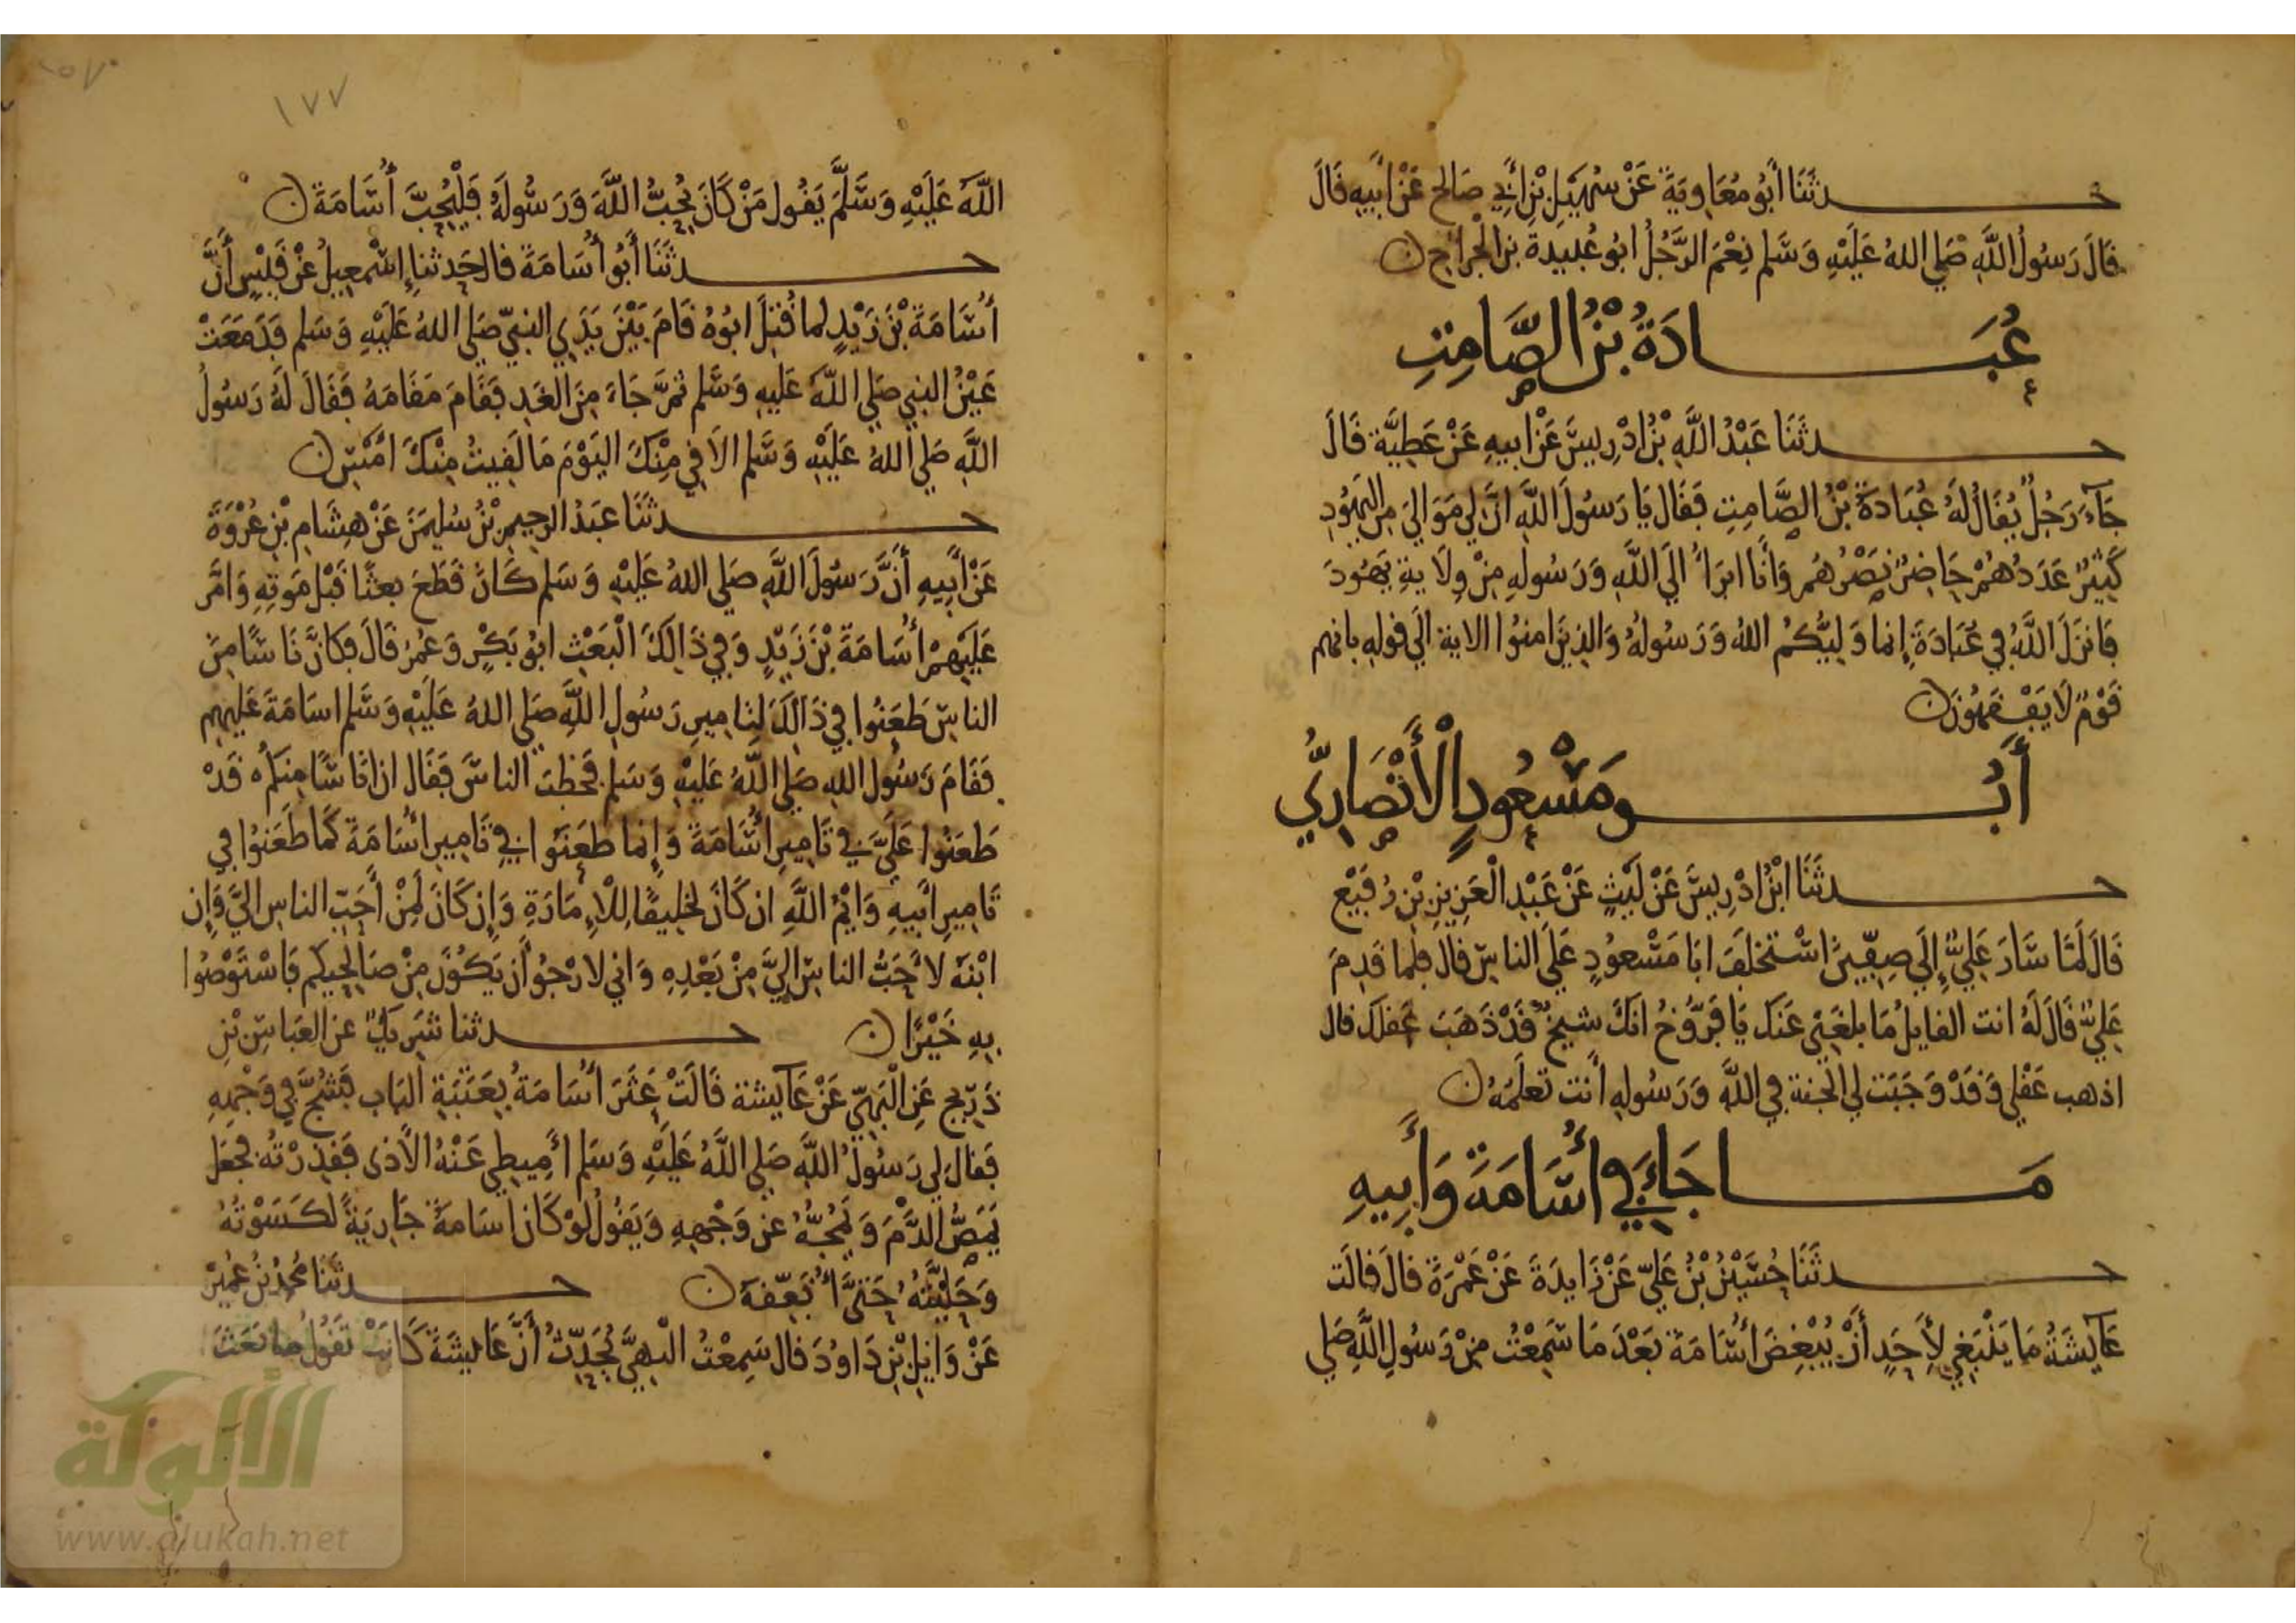 حدثنا أبو معاوية عن سهيل بن أبي صالح عن أبيه قال
قال رسول الله صلى الله عليه وسلم نعم الرجل أبو عبيدة بن الجراح ن
عبادة بن الصامت
حدثنا عبد الله بن ادريس عن ابيه عن عطية قال
جاء رجل يقال له عبادة بن الصامت فقال يا رسول الله ان لي موالي من اليهود
كثير عددهم حاضر نصرهم وأنا ابرأ الى الله ورسوله من ولاية يهود
فانزل الله في عبادة إنما وليكم الله ورسوله والذين امنوا الاية الى قوله بانهم
قوم لا يفقهون ن
أبو مسعود الأنصاري
حدثنا ابن ادريس عن ليث عن عبد العزيز بن رفيع
قال لما سار علي إلى صفين استخلف ابا مسعود على الناس قال فلما قدم
علي قال له انت القايل ما بلغني عنك يا فروخ انك شيخ قد ذهب عقلك قال
اذهب عقلي وقد وجبت لي الجنة في الله ورسوله أنت تعلمه ن
ما جاء في أسامة وأبيه
حدثنا حسين بن علي عن زايدة عن عمرة قال قالت
عايشة ما ينبغي لأحد أن يبغض أسامة بعد ما سمعت من رسول الله صلى
١٧٧
الله عليه وسلم يقول من كان يحب الله ورسوله فليحب أسامة ن
حدثنا أبو أسامة قال حدثنا إسمعيل عن قيس أن
أسامة بن زيد لما قتل ابوه قام بين يدي النبي صلى الله عليه وسلم فدمعت
عين النبي صلى الله عليه وسلم ثم جاء من الغد فقام مقامه فقال له رسول
الله صلى الله عليه وسلم الاقي منك اليوم ما لقيت منك امس ن
حدثنا عبد الرحيم بن سليمن عن هشام بن عروة
عن أبيه أن رسول الله صلى الله عليه وسلم كان قطع بعثا قبل موته وامر
عليهم أسامة بن زيد وفي ذالك البعث ابو بكر وعمر قال فكان ناسا من
الناس طعنوا في ذالك لتامير رسول الله صلى الله عليه وسلم اسامة عليهم
فقام رسول الله صلى الله عليه وسلم فخطب الناس فقال ان ناسا منكم قد
طعنوا علي في تامير أسامة وإنما طعنوا في تامير أسامة كما طعنوا في
تامير أبيه وايم الله ان كان لخليقا للإمارة وإن كان لمن أحب الناس الي وإن
ابنه لأحب الناس الي من بعده واني لارجو أن يكون من صالحيكم فاستوصوا
به خيرا ن حدثنا شريك عن العباس بن
ذريح عن البهي عن عايشة قالت عثر أسامة بعتبة الباب فشج في وجهه
فقال لي رسول الله صلى الله عليه وسلم أميطي عنه الأذى فقذرته فجعل
يمص الدم ويمجه عن وجهه ويقول لو كان اسامة جارية لكسوته
وحليته حتى أنفقه ن حدثنا محمد بن عبيد
عن وايل بن داود قال سمعت البهي يحدث أن عايشة كانت تقول ما بعث
الألوكة
www.alukah.net